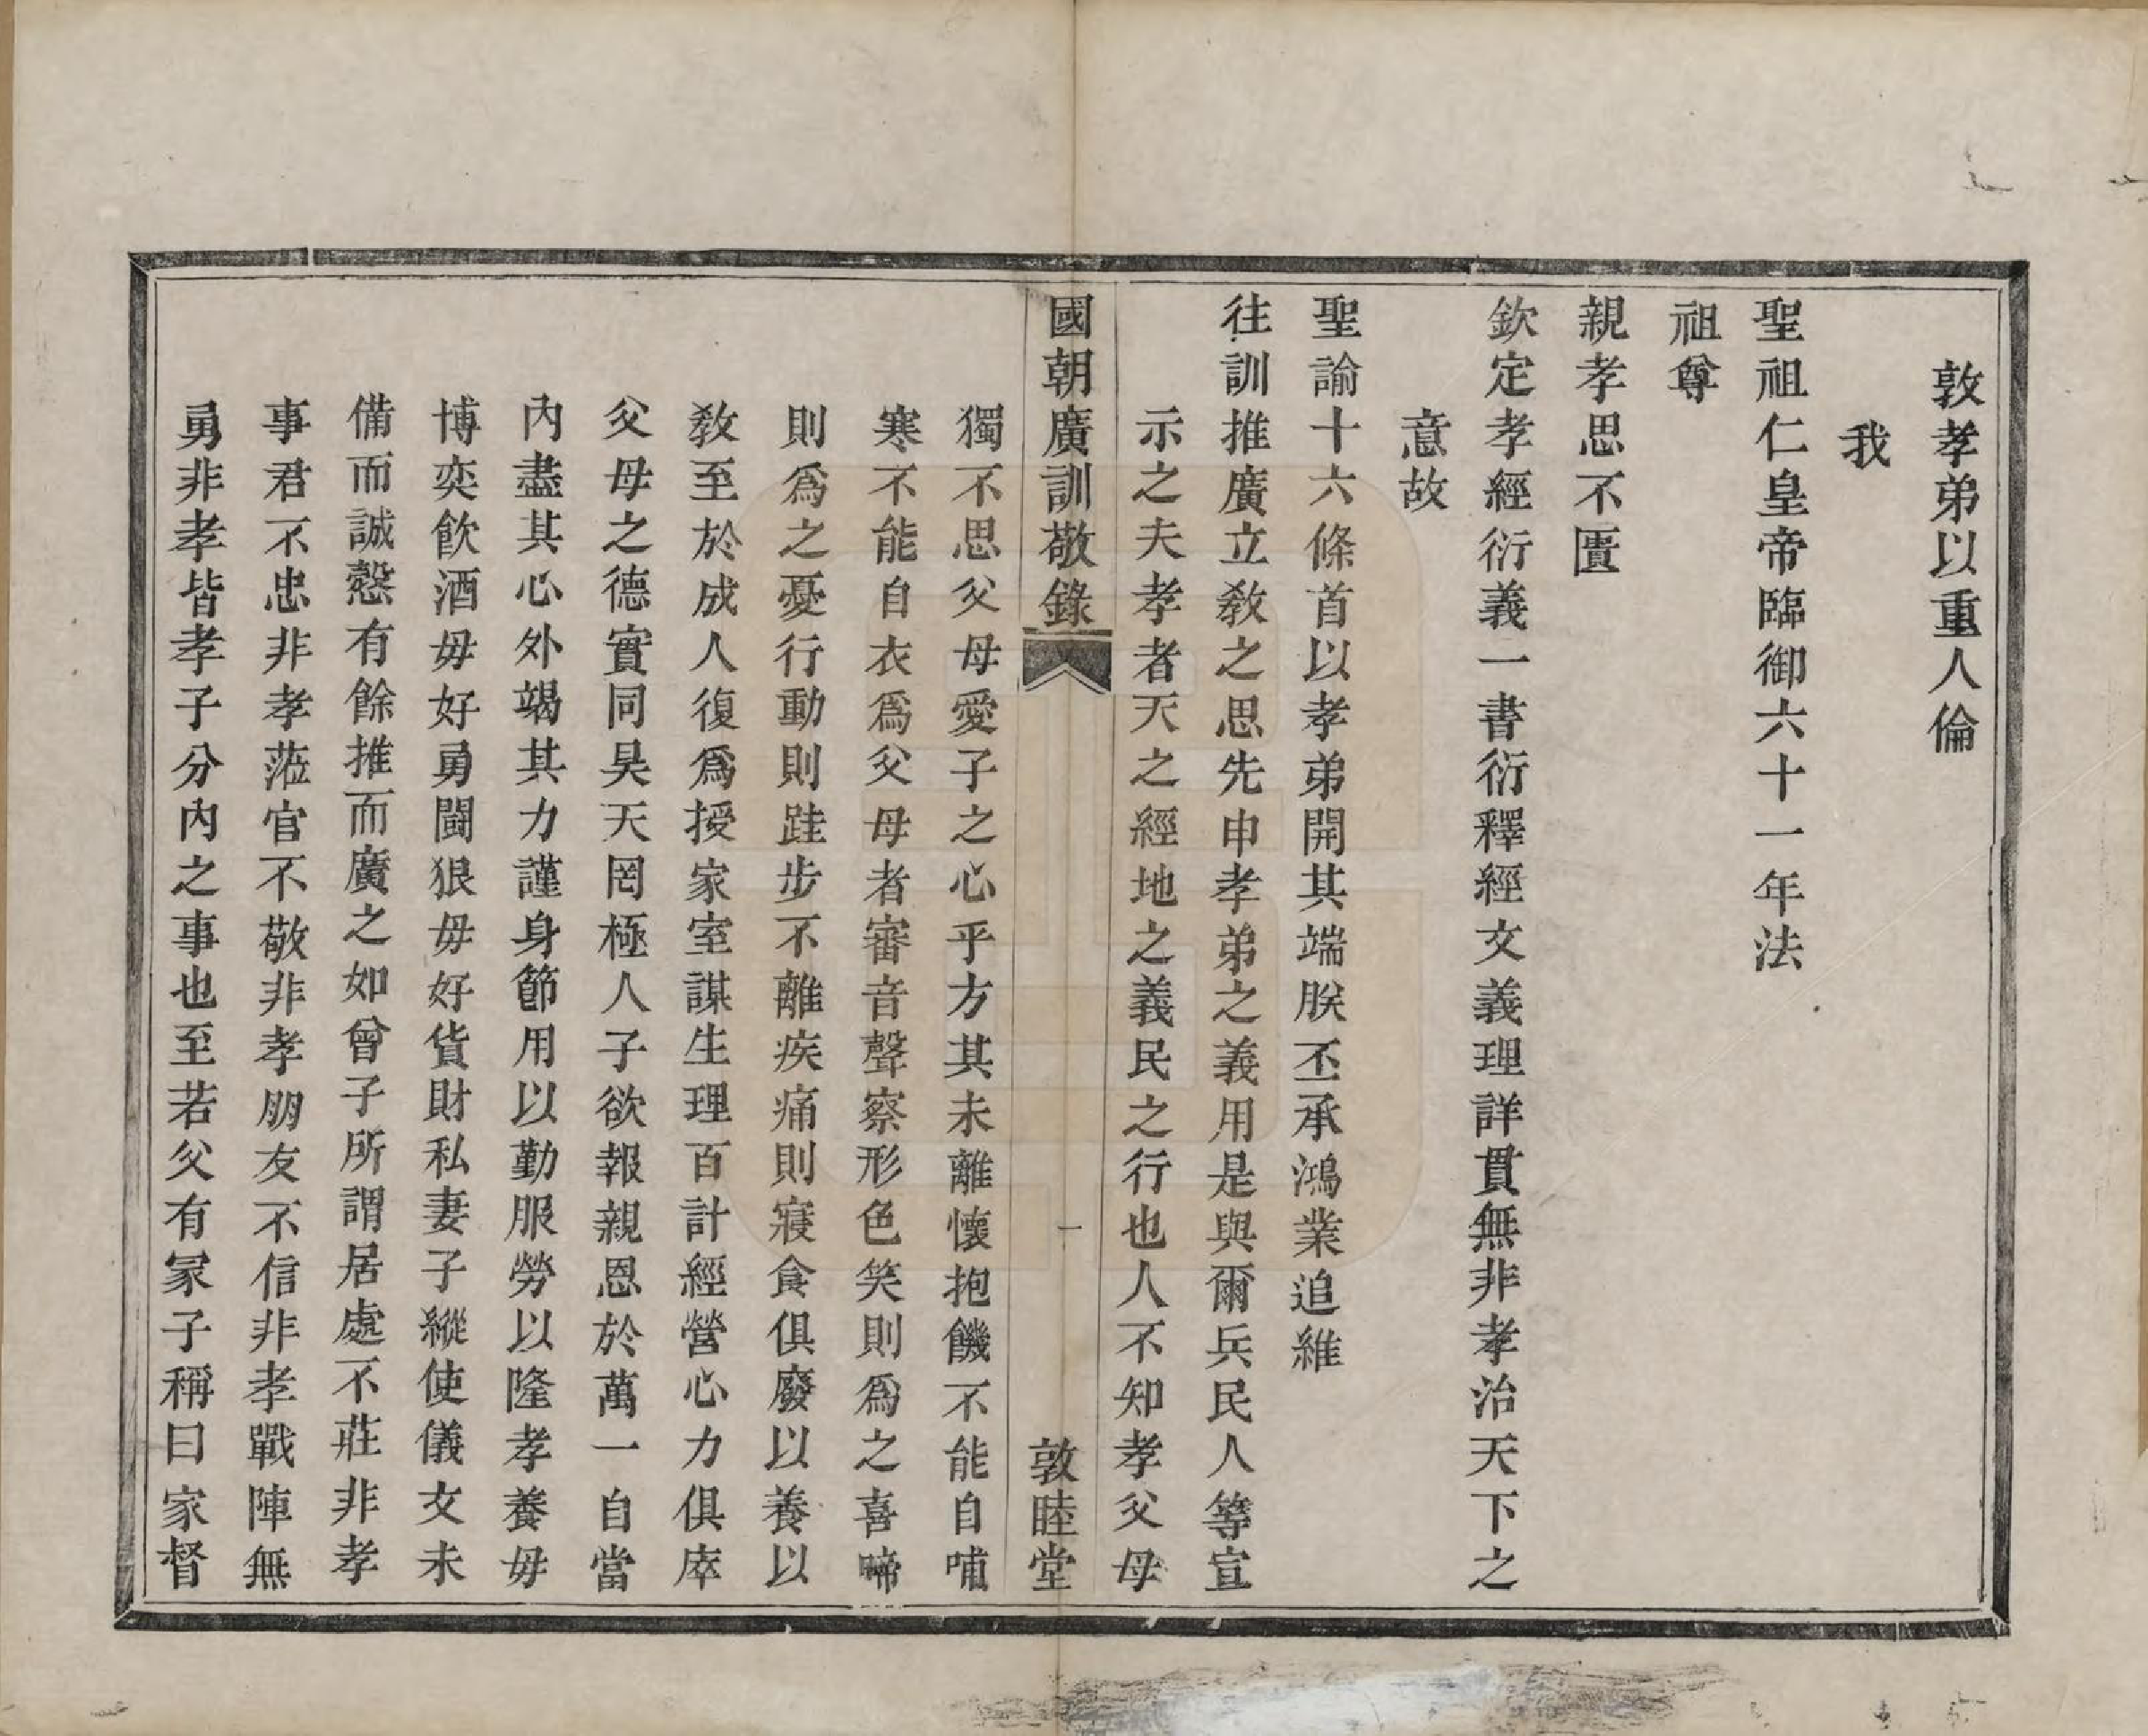 敦孝弟以重人倫
我
聖祖仁皇帝臨御六十一年法
祖尊
親孝思不匱
欽定孝經衍義一書衍釋經文義理詳貫無非孝治天下之
意故
聖諭十六條首以孝弟開其端朕丕承鴻業追維
往訓推廣立敎之思先申孝弟之義用是與爾兵民人等宣
示之夫孝者天之經地之義民之行也人不知孝父母
國朝廣訓敬錄
一
敦睦堂
獨不思父母愛子之心乎方其未離懷抱饑不能自哺
寒不能自衣爲父母者審音聲察形色笑則爲之喜啼
則爲之憂行動則跬步不離疾痛則寢食俱廢以養以
敎至於成人復爲授家室謀生理百計經營心力俱瘁
父母之德實同昊天罔極人子欲報親恩於萬一自當
內盡其心外竭其力謹身節用以勤服勞以隆孝養毋
博奕飲酒毋好勇鬪狠毋好貨財私妻子縱使儀文未
備而誠慤有餘推而廣之如曾子所謂居處不莊非孝
事君不忠非孝蒞官不敬非孝朋友不信非孝戰陣無
勇非孝皆孝子分內之事也至若父有冢子稱曰家督